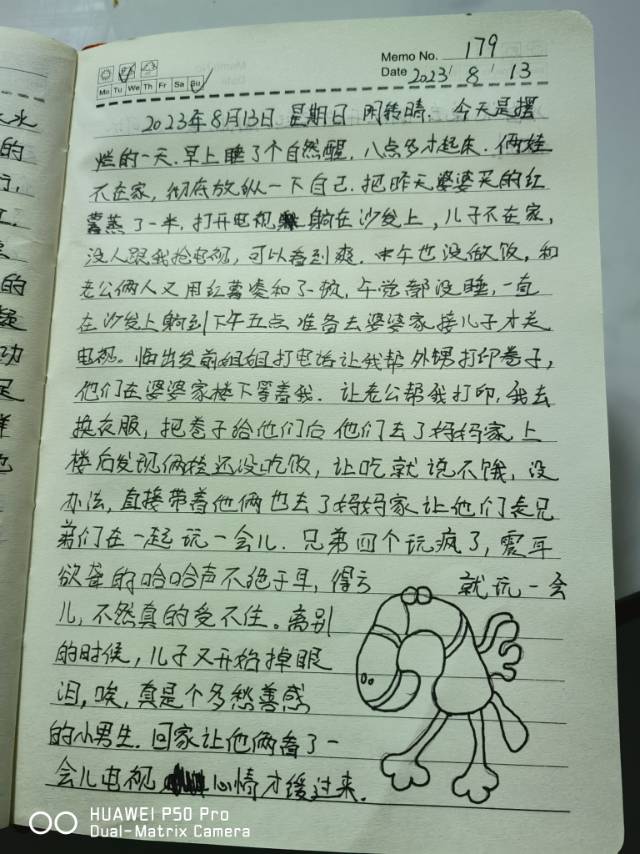 Memo No. 179
Mo Tu We Th Fr Sa Su
Date 2023 8 13
2023年8月13日 星期日 阴转晴. 今天是摆
烂的一天. 早上睡了个自然醒, 八点多才起床. 俩娃
不在家, 彻底放纵一下自己. 把昨天婆婆买的红
薯蒸了一半. 打开电视 躺在沙发上, 儿子不在家,
没人跟我抢电视, 可以看到爽. 中午也没做饭, 和
老公俩人又用红薯凑和了一顿, 午觉都没睡, 一直
在沙发上躺到下午五点 准备去婆婆家接儿子才关
电视. 临出发前姐姐打电话让我帮外甥打印卷子,
他们在婆婆家楼下等着我. 让老公帮我打印, 我去
换衣服, 把卷子给他们后 他们去了妈妈家. 上
楼后发现俩娃还没吃饭, 让吃就说不饿, 没
办法, 直接带着他俩也去了妈妈家 让他们表兄
弟们在一起玩一会儿. 兄弟四个玩疯了, 震耳
欲聋的哈哈声不绝于耳, 得亏 就玩一会
儿, 不然真的受不住。离别
的时候, 儿子又开始掉眼
泪, 唉, 真是个多愁善感
的小男生. 回家让他俩看了一
会儿电视 心情才缓过来.
HUAWEI P50 Pro
Dual-Matrix Camera